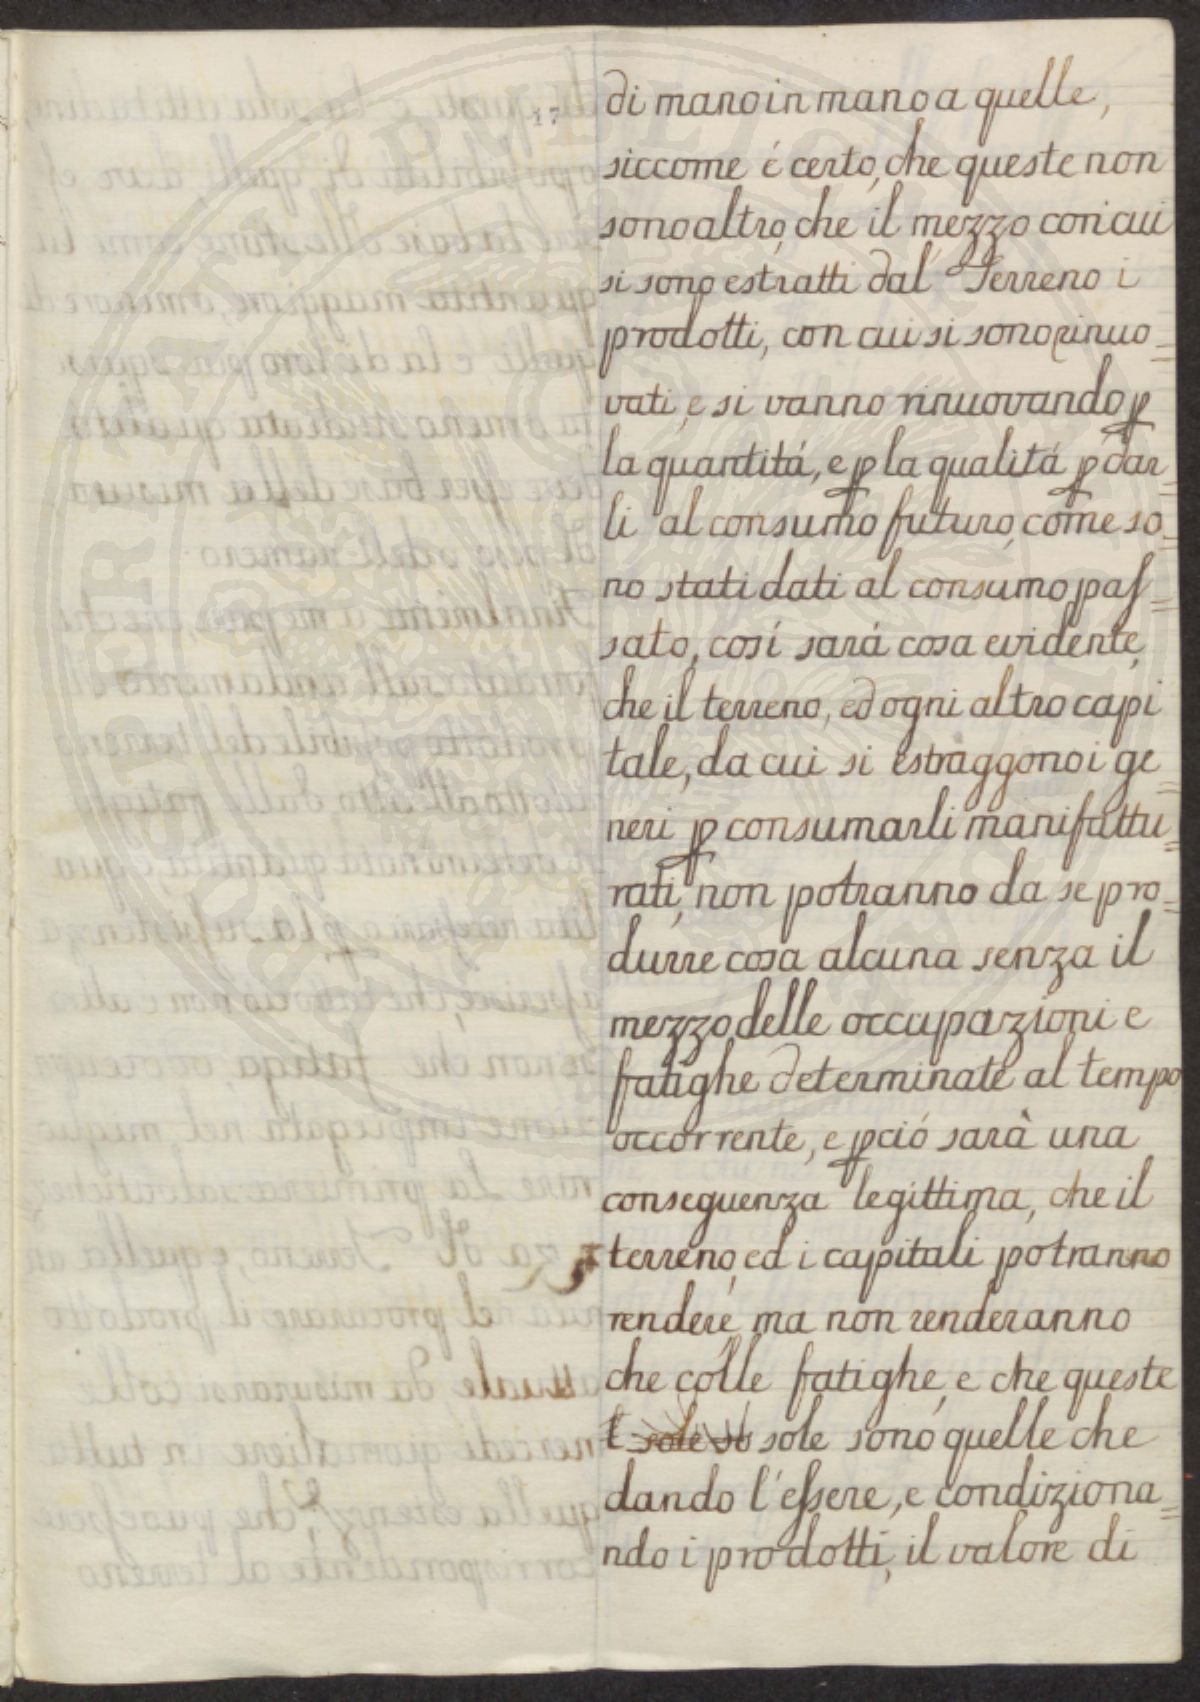 17
di mano in mano a quelle,
siccome é certo, che queste non
sono altro, che il mezzo con cui
si sono estratti dal Terreno i
prodotti, con cui si sono rinuo_
vati, e si vanno rinuovando ꝑ
la quantitá, e ꝑ la qualitá ꝑ dar=
li al consumo futuro, come so=
no stati dati al consumo paſ=
sato, cosí sará cosa evidente,
che il terreno, ed ogni altro capi
tale, da cui si estraggono i ge=
neri ꝑ consumarli manifattu=
rati, non potranno da se pro=
durre cosa alcuna senza il
mezzo delle occupazioni e
fatighe determinate al tempo
occorrente, e ꝑció sarà una
conseguenza legittima, che il
terreno, ed i capitali potranno
rendere, ma non renderanno
che colle fatighe, e che queste
sole so sole sono quelle che
dando l'eſsere, e condiziona=
ndo i prodotti, il valore di